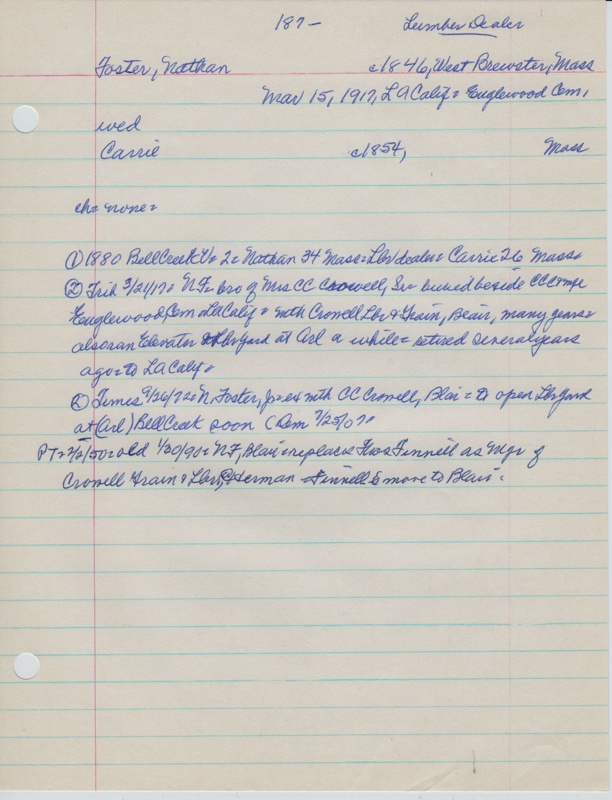 187- Lumber Dealer
Foster, Nathan c1846, West Brewster, Mass
Mar 15, 1917, LA Calif = Englewood Cem,
wed
Carrie c1854, Mass
ch = none =
① 1880 BellCreek V = 2 = Nathan 34 Mass = Lbr dealer = Carrie 26 Mass =
② Trib 3/21/17 = NF = bro of Mrs CC Crowell, Sr = buried beside CCC
Englewood Cem LA Calif = with Crowell Lbr & Grain, Blair, many years =
also ran Elevator & Lbr Yard at Arl a while = retired several years
ago = to LA Calif =
③ Times 9/26/72 = N. Foster, with CC Crowell, Blai = to open Lbr Yard
at (Arl) BellCreek soon (Dem 7/25/07 =
PT = 50 = old 1/30/90 = NF, Blair = replaces Thos Finnell as Mgr of
Crowell Grain & Lbr, @ Herman = Finnell to move to Blair =